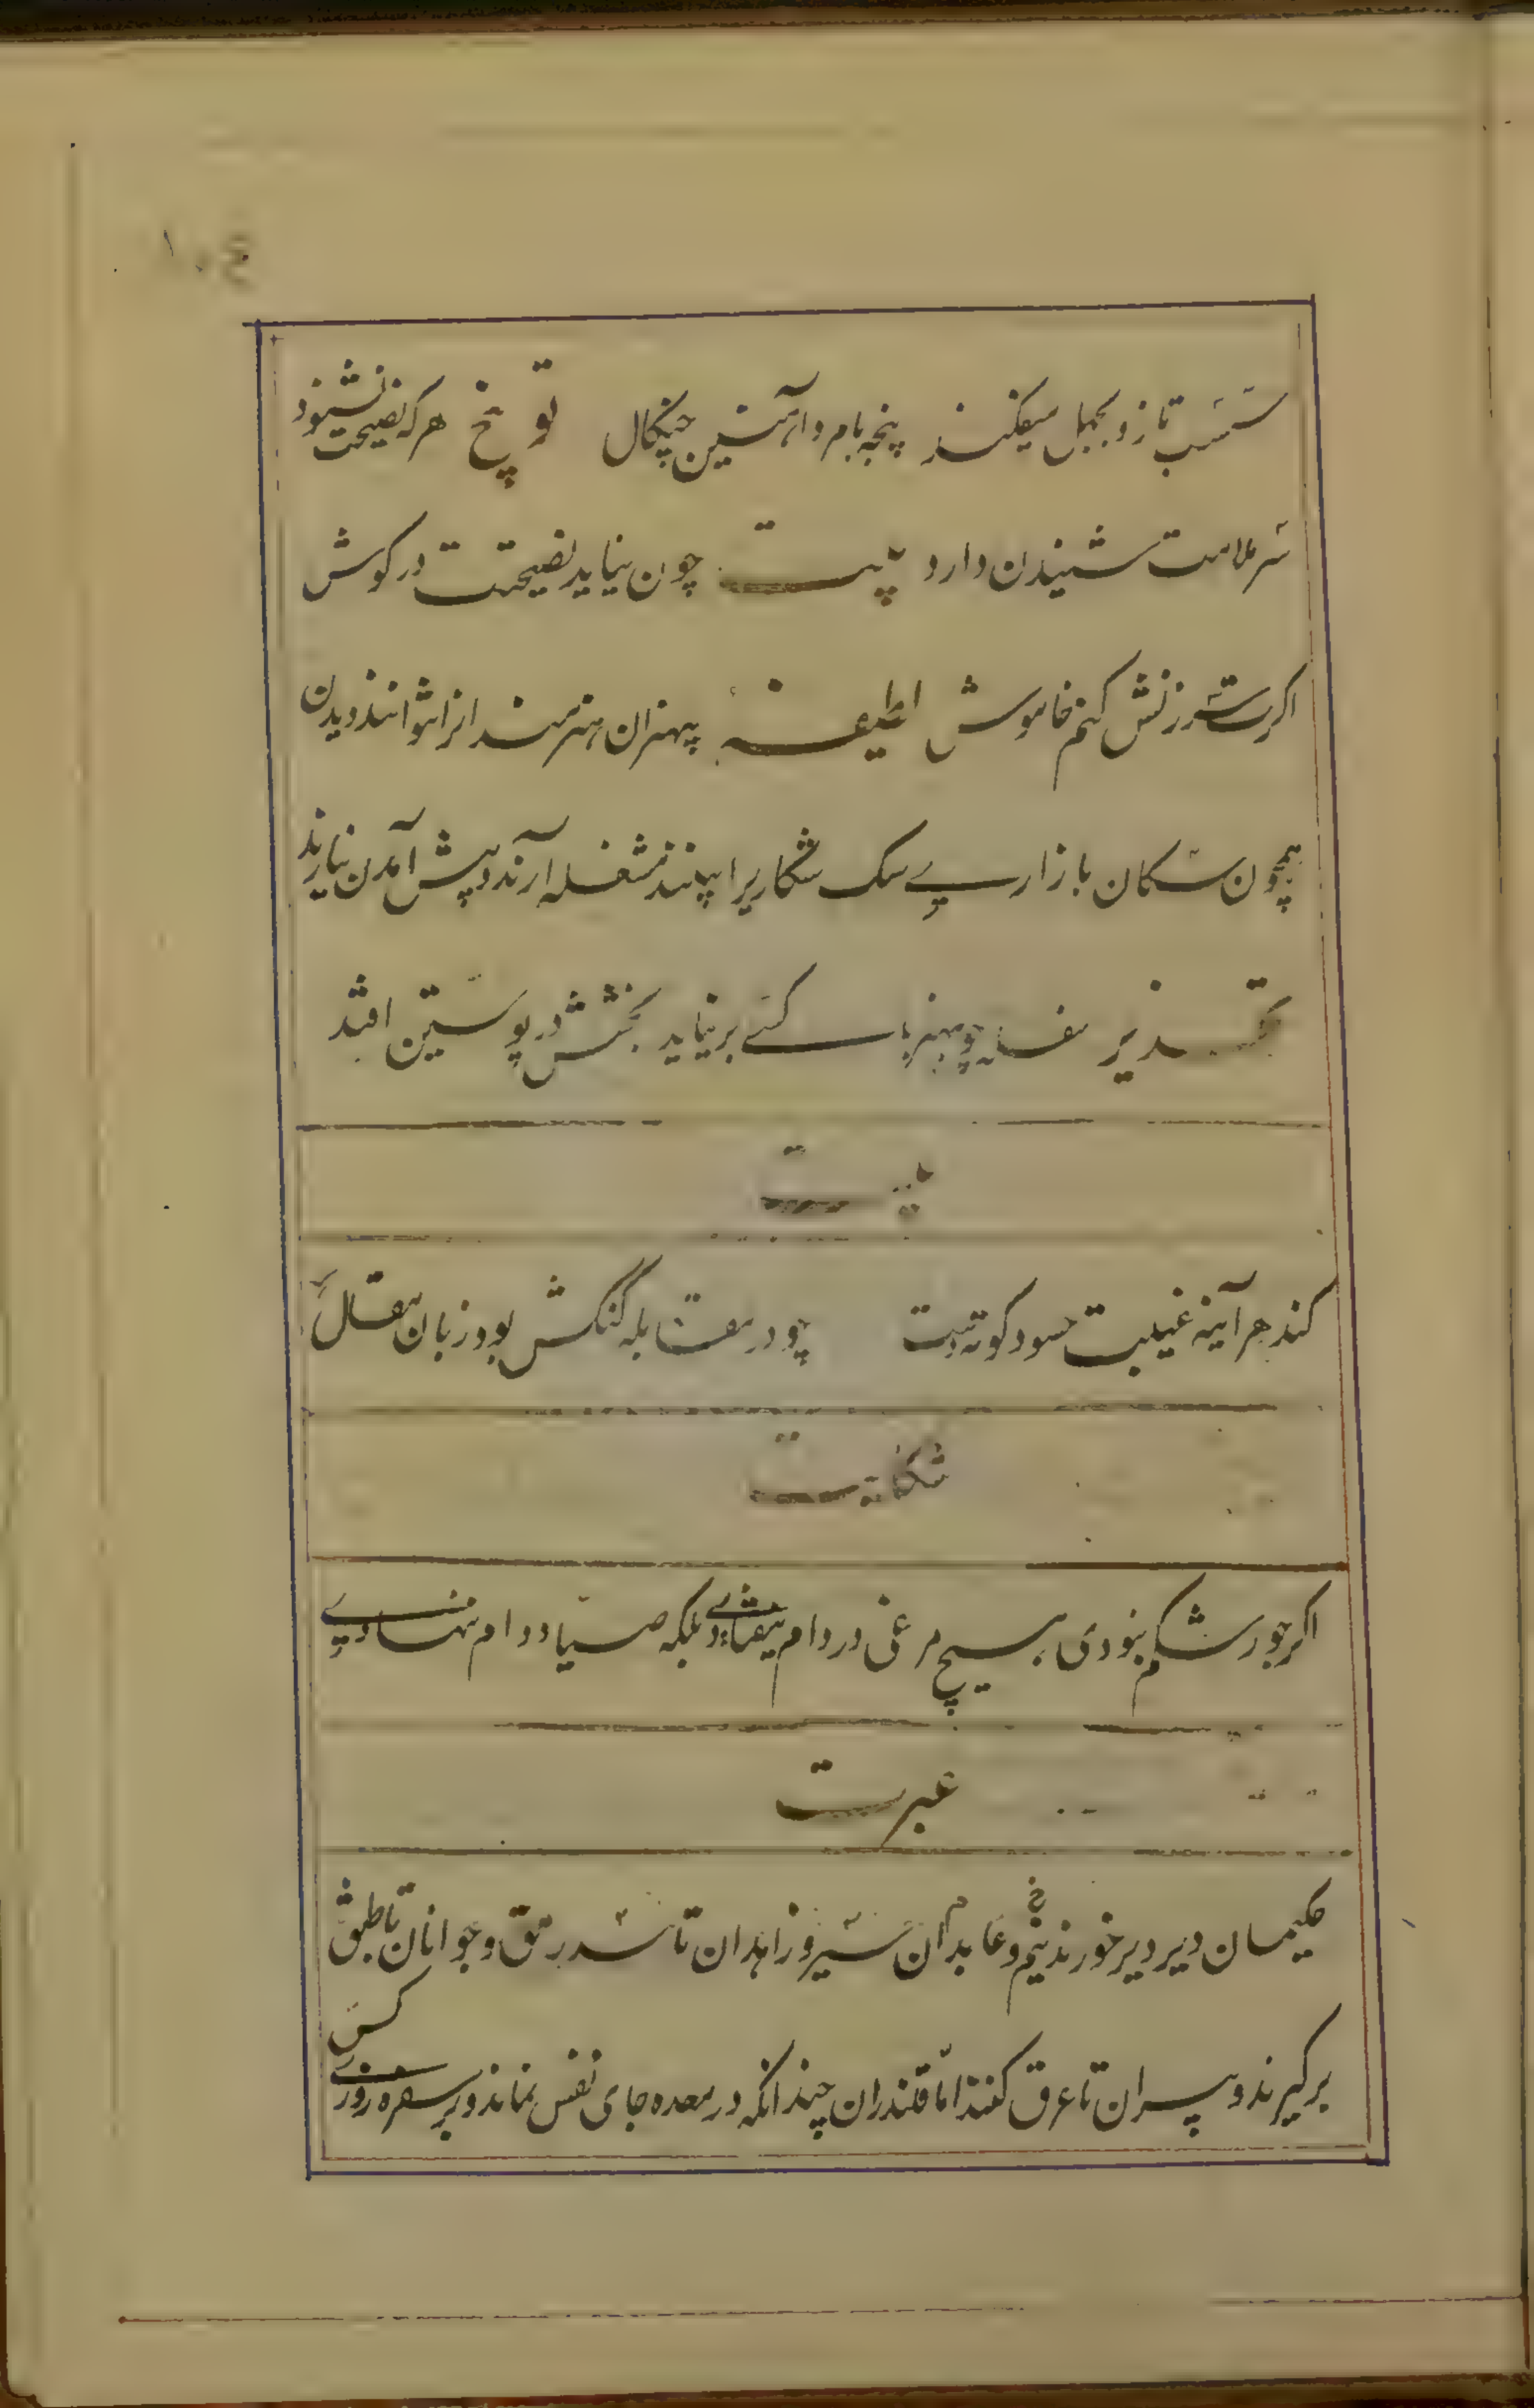 سست بازو بجهل میفکند پنجه بامرد آهنین چنکال توبیخ هرکه نصیحت نشنود
سر ملامت شنیدن دارد بیت چون نیاید نصیحتت در کوش
اکرت سرزنش کنم خاموش لطیفه بیهنران هنرمند را نتوانند دیدن
همچون سکان بازاری سک شکاریرا بینند مشغله آرند و پیش آمدن نیارند
تحذیر سفله چو بهنر با کسی برنیاید بخبثش در پوستین افتد
بیت
کند هر آینه غیبت حسود کوته دست چو در مقابله گنکش بود زبان مقال
شکایت
اکر جور شکم نبودی هیچ مرغی در دام نیفتادی بلکه صیاد دام ننهادی
عبرت
حکیمان دیر دیر خورند و عابدان نیم سیر و زاهدان تا سد رمق و جوانان تا طبق
برکیرند و پیران تا عرق کنند اما قلندران چندانکه در معده جای نفس نماند و بر سفره روزی کس